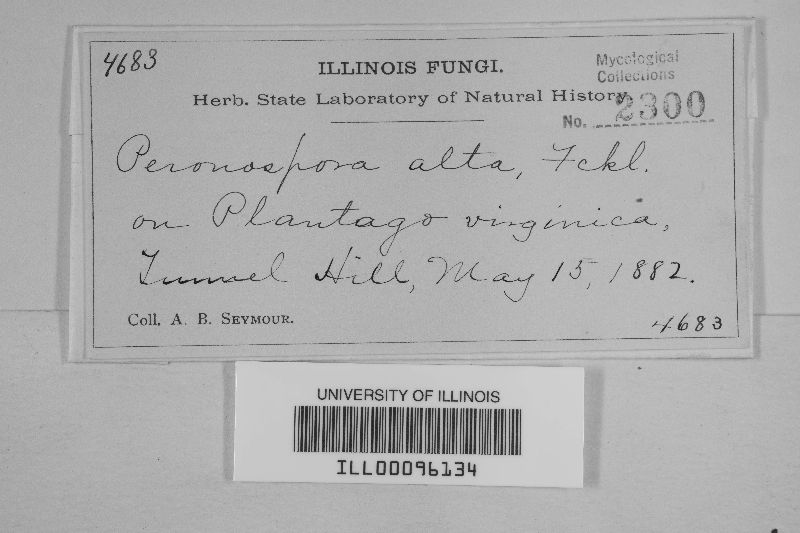 4683
ILLINOIS FUNGI.
Mycological
Collections
Herb. State Laboratory of Natural History.
No. 2300
Peronospora alta, Fckl.
on Plantago virginica,
Tunnel Hill, May 15, 1882.
Coll. A. B. SEYMOUR.
4683
UNIVERSITY OF ILLINOIS
ILL00096134